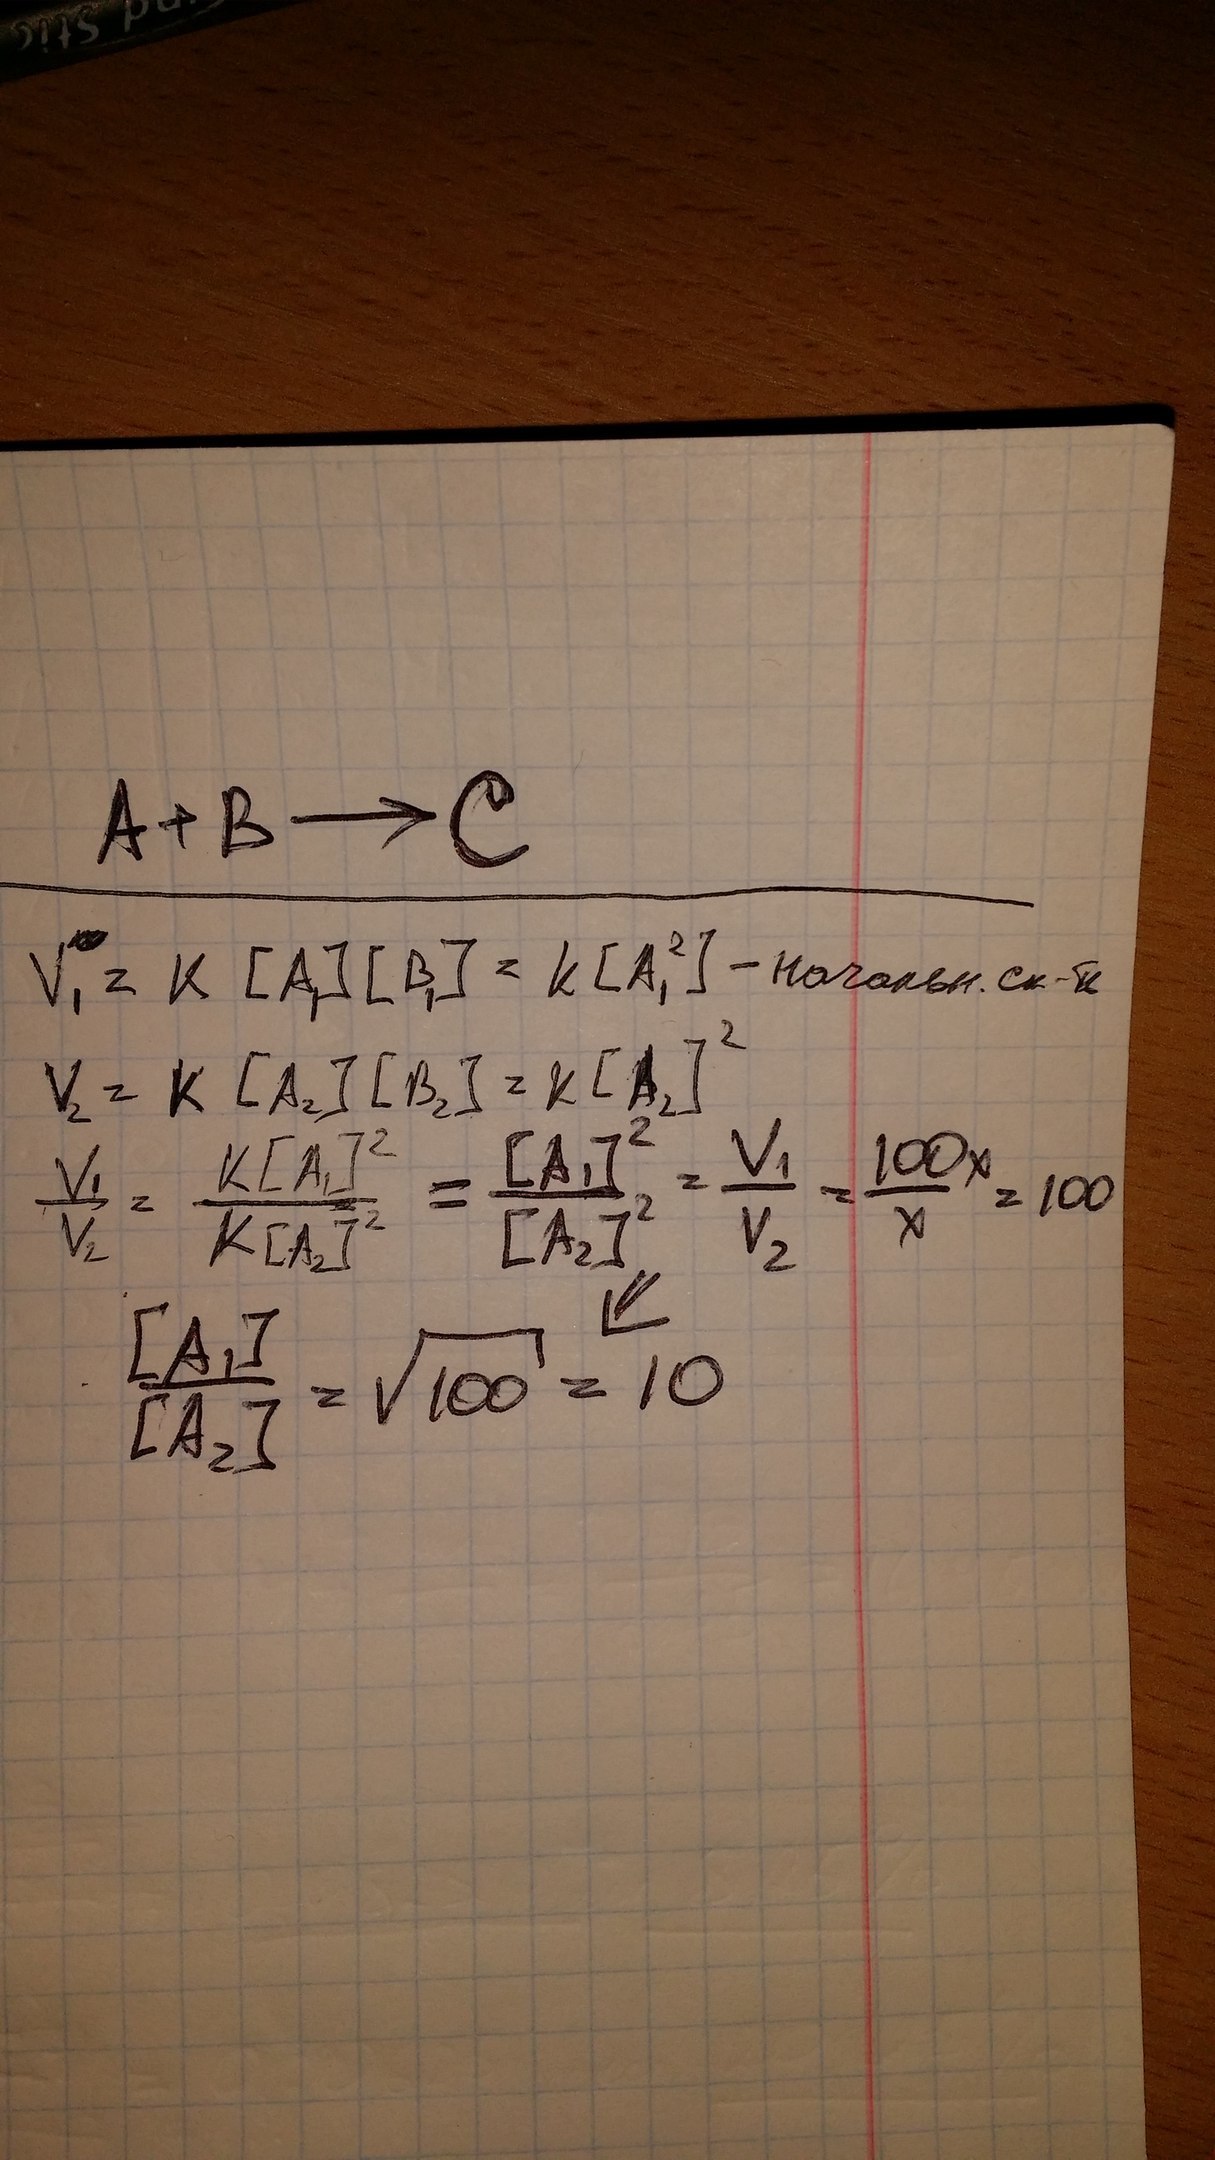 nd Stic
A + B → C
V₁ = K [A₁][B₁] = K[A₁²] – начальн. ск-ть
V₂ = K [A₂][B₂] = K[A₂]²
V₁/V₂ = K[A₁]²/K[A₂]² = [A₁]²/[A₂]² = V₁/V₂ = 100x/x = 100
[A₁]/[A₂] = √100 = 10